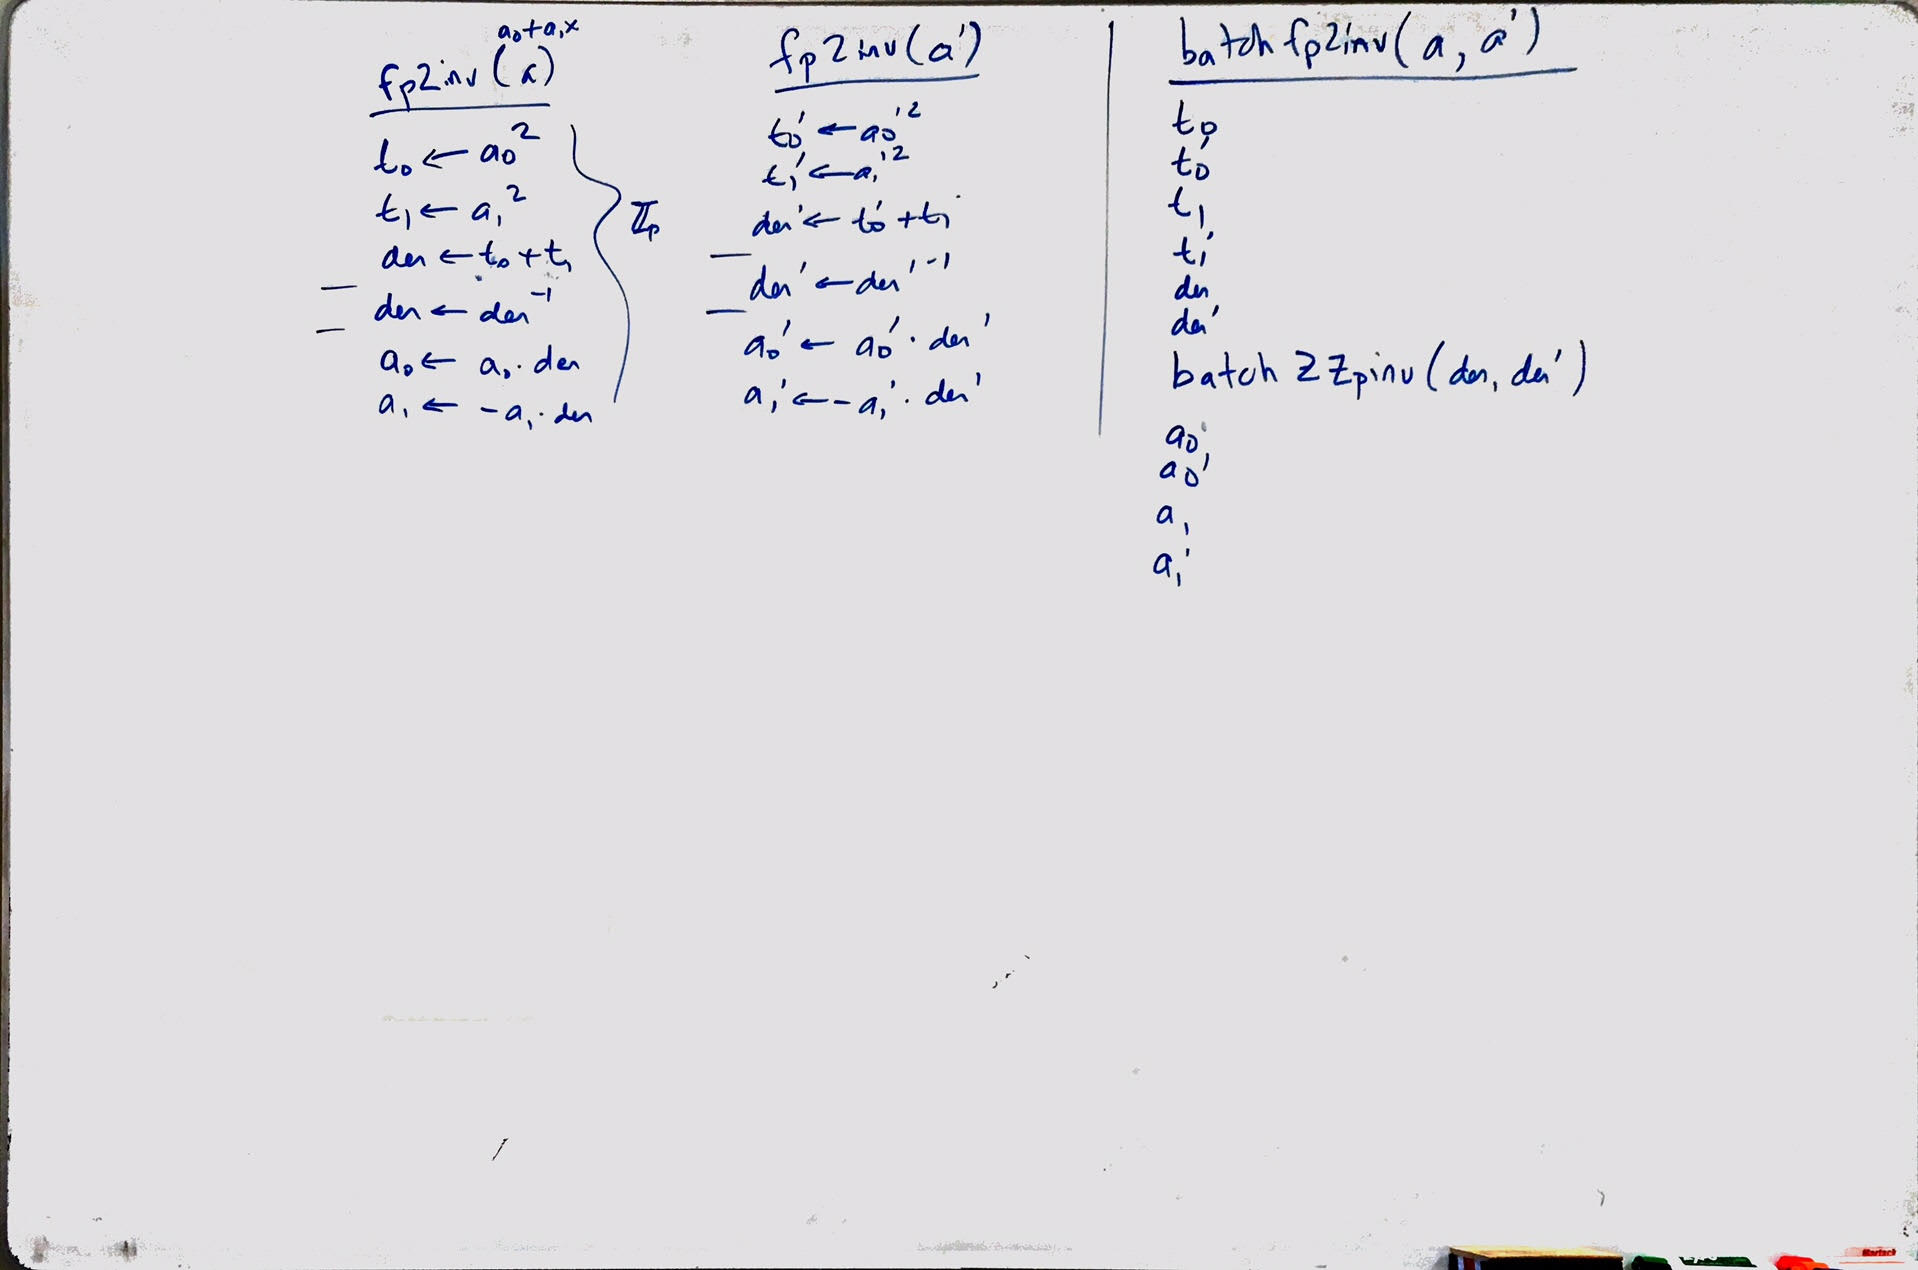 a₀+a₁x
fp2inv(a)
t₀ ← a₀²
t₁ ← a₁²
den ← t₀+t₁
den ← den⁻¹
a₀ ← a₀·den
a₁ ← -a₁·den
ℤp
fp2inv(a')
t₀' ← a₀'²
t₁' ← a₁'²
den' ← t₀'+t₁'
den' ← den'⁻¹
a₀' ← a₀'·den'
a₁' ← -a₁'·den'
batchfp2inv(a, a')
t₀
t₀'
t₁
t₁'
den
den'
batchZZpinv(den, den')
a₀
a₀'
a₁
a₁'